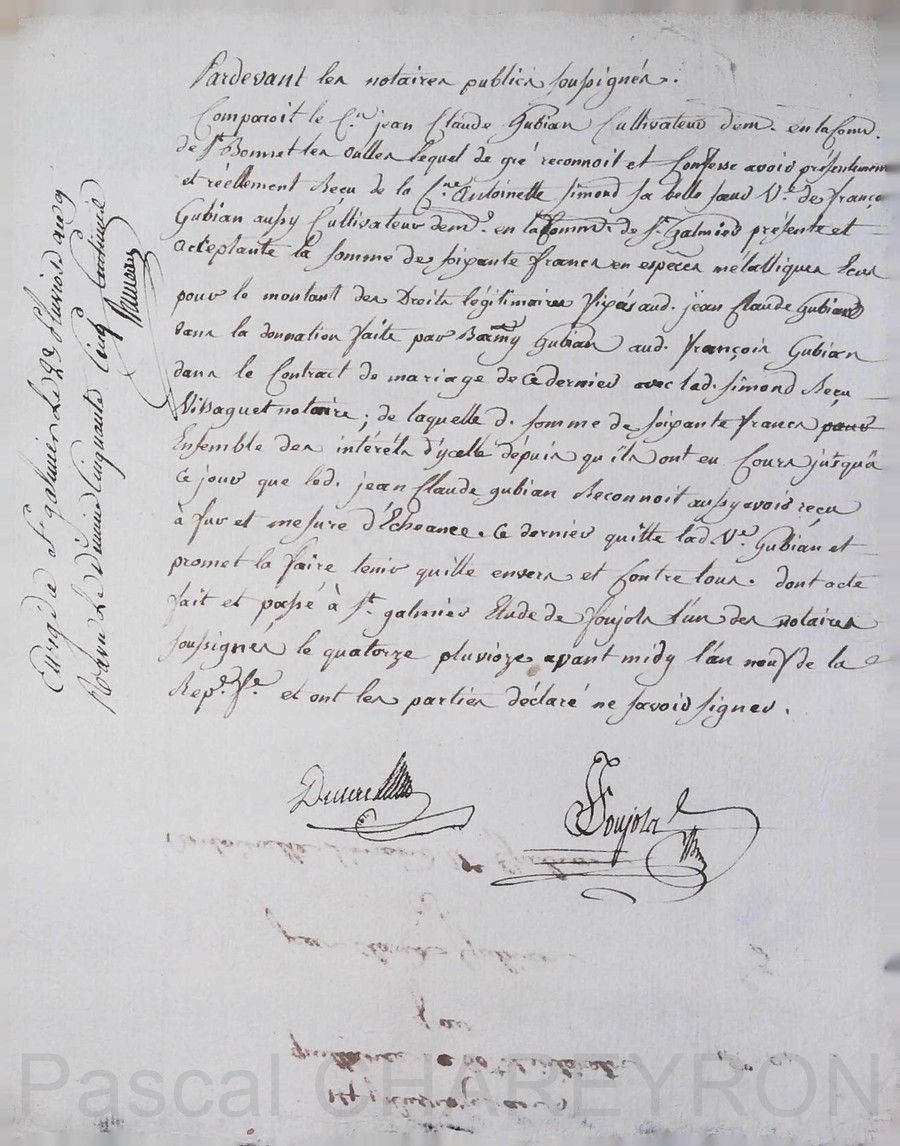 Pardevant les notaires publics soussignés.
Comparoit le C.en jean Claude Gubian Cultivateur dem.t en la Com.
de St Bonnet les oulles lequel de gré reconnoit et Confesse avoir présentement
et réellement Reçu de la C.ne Antoinette Simond sa belle sœur V.e de franço
Gubian aussy Cultivateur dem.t en la Comm. de St Galmier présente et
acceptante la somme de soixante francs en espèces métalliques Ecus
pour le montant des Droits légitimaires fixés aud. jean Claude Gubian
dans la donnation faite par Barmy Gubian aud. françois Gubian
dans le Contract de mariage de ce dernier avec lad. Simond Reçu
Vissaguet notaire ; de laquelle d. somme de soixante francs pour
Ensemble des intérêts d'ycelle depuis qu'ils ont eu Cours jusqu'à
ce jour que led. jean Claude gubian Reconnoit aussy avoir reçu
à fur et mesure d'Echeance. Ce dernier quitte lad. V.e Gubian et
promet la faire tenir quitte envers et Contre tous. dont acte
fait et passé à St galmier Etude de Soujols l'un des notaires
soussignés le quatorze pluvioze avant midy l'an neuf de la
Rep.e f.e et ont les parties déclaré ne savoir signer.
Soujols
St galmier Le 22 Pluviose an 9
Reçu Le Démi cinquante Cinq Centimes
Pascal CHAREYRON